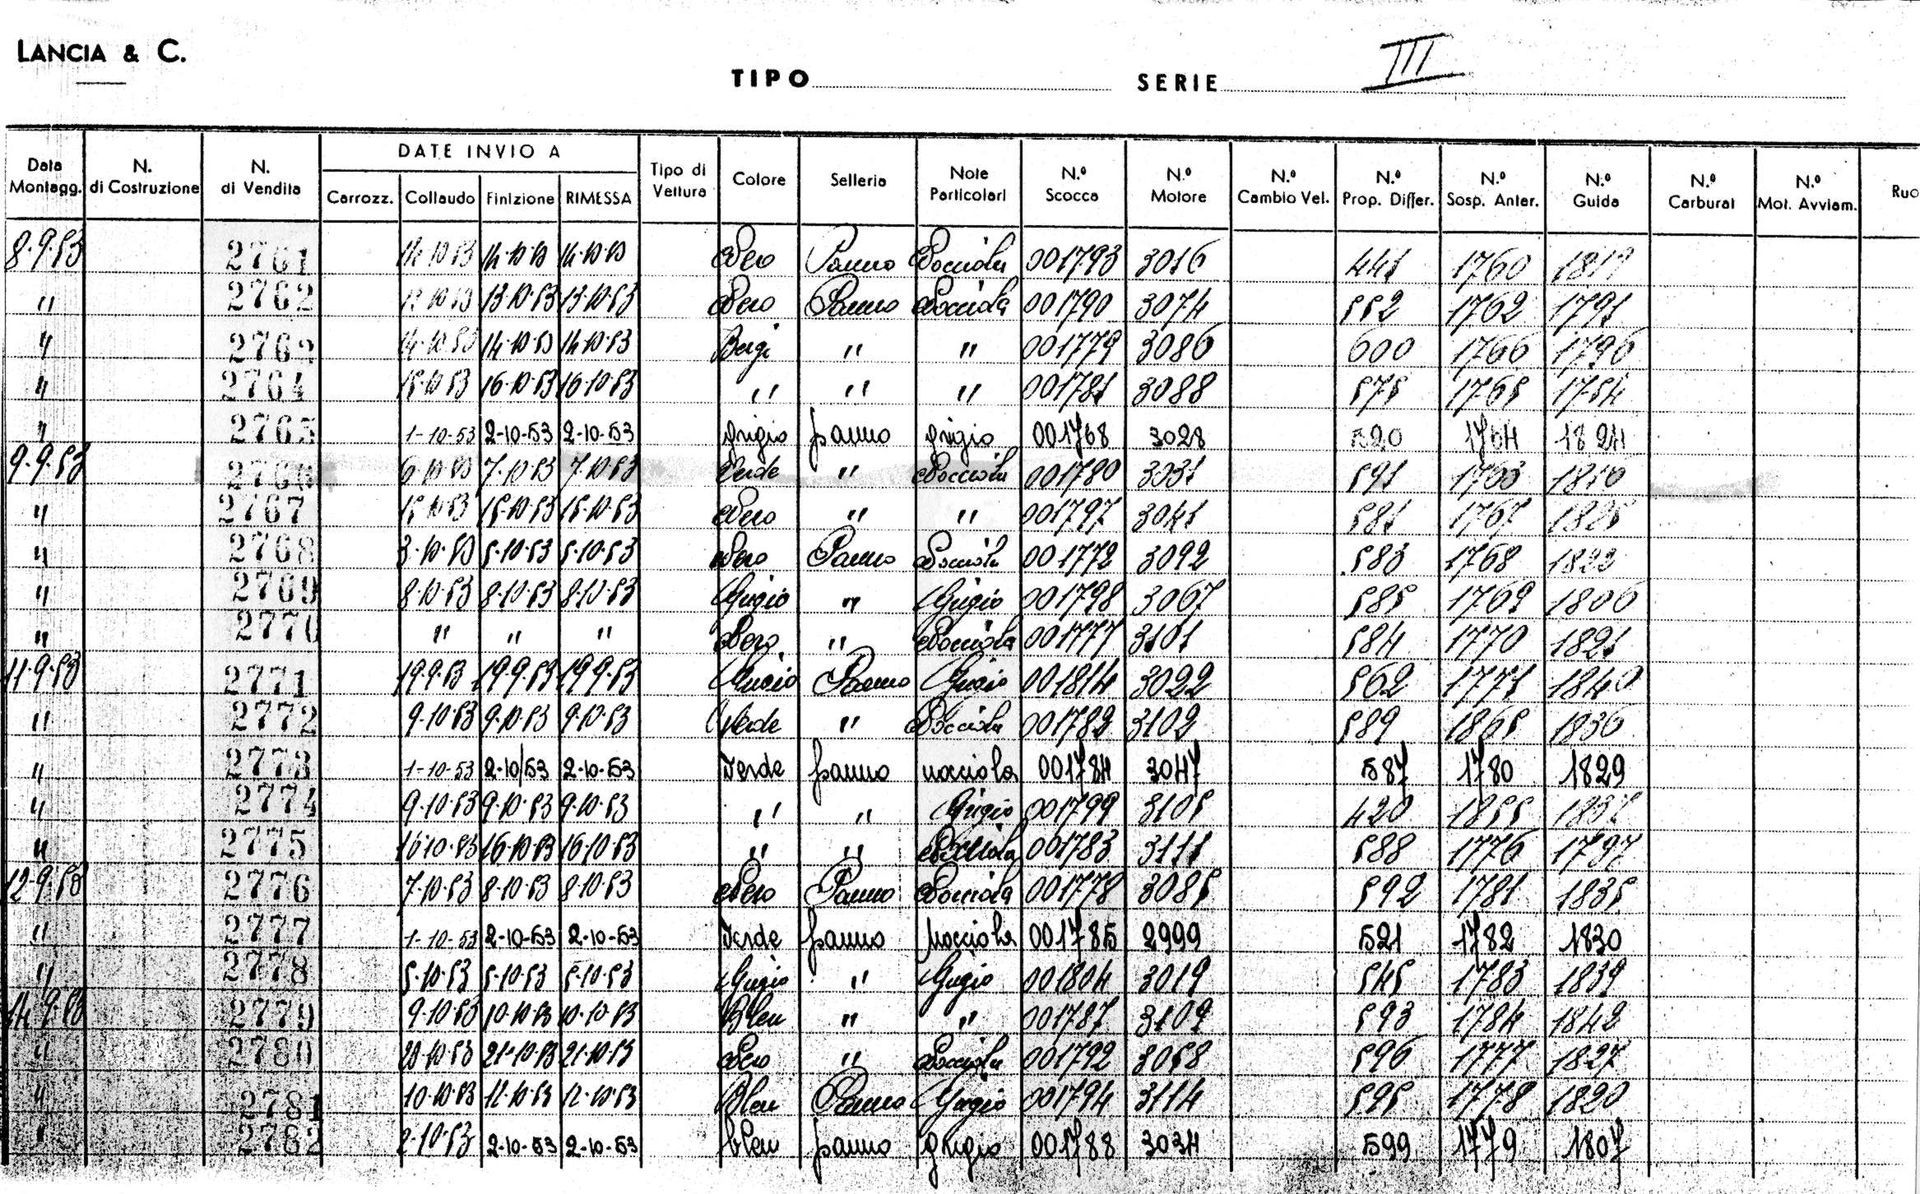 LANCIA & C.
TIPO SERIE III
Data Montagg. N. di Costruzione N. di Vendita DATE INVIO A Carrozz. Collaudo Finizione RIMESSA Tipo di Vettura Colore Selleria Note Particolari N.º Scocca N.º Motore N.º Cambio Vel. N.º Prop. Differ. N.º Sosp. Anter. N.º Guida N.º Carburat N.º Mot. Avviam. Ruo
8.9.53 2761 14.10.53 14.10.53 Nero Panno Nocciola 001793 3016 441 1760 1819
" 2762 13.10.53 13.10.53 Nero Panno Nocciola 001790 3074 552 1762 1791
" 2763 14.10.53 14.10.53 14.10.53 Beige " " 001779 3086 600 1766 1796
" 2764 15.10.53 16.10.53 16.10.53 " " " 001781 3088 575 1765 1754
" 2765 1-10-53 2-10-53 2-10-53 grigio panno grigio 001768 3028 520 1764 1824
9.9.53 2766 6.10.53 7.10.53 7.10.53 Verde " Nocciola 001780 3031 591 1763 1816
" 2767 15.10.53 15.10.53 15.10.53 Nero " " 001797 3041 581 1767 1825
" 2768 3.10.53 5.10.53 5.10.53 Nero Panno Nocciola 001772 3092 583 1768 1822
" 2769 8.10.53 8.10.53 8.10.53 Grigio " Grigio 001798 3067 585 1769 1806
" 2770 " " " Nero " Nocciola 001777 3101 584 1770 1821
11.9.53 2771 19.9.53 19.9.53 19.9.53 Grigio Panno Grigio 001814 3022 562 1771 1840
" 2772 9.10.53 9.10.53 9.10.53 Verde " Nocciola 001782 3102 589 1865 1836
" 2773 1-10-53 2-10-53 2-10-53 Verde panno nocciola 001784 3047 587 1780 1829
" 2774 9.10.53 9.10.53 9.10.53 " " Grigio 001799 3105 420 1855
" 2775 16.10.53 16.10.53 16.10.53 " " Nocciola 001783 3111 588 1776 1797
12.9.53 2776 7.10.53 8.10.53 8.10.53 Nero Panno Nocciola 001778 3085 592 1781 1835
" 2777 1-10-53 2-10-53 2-10-53 Verde panno Nocciola 001785 2999 521 1782 1830
" 2778 5.10.53 5.10.53 5.10.53 Grigio " Grigio 001804 3019 545 1783 1839
14.9.53 2779 9.10.53 10.10.53 10.10.53 Bleu " " 001787 3109 593 1784 1842
" 2780 20.10.53 21.10.53 21.10.53 Nero " Nocciola 001792 3058 596 1777 1827
" 2781 10.10.53 12.10.53 12.10.53 Bleu Panno Grigio 001794 3114 595 1778 1820
" 2782 2-10.53 2-10-53 2-10-53 bleu panno grigio 001788 3034 599 1779 1807